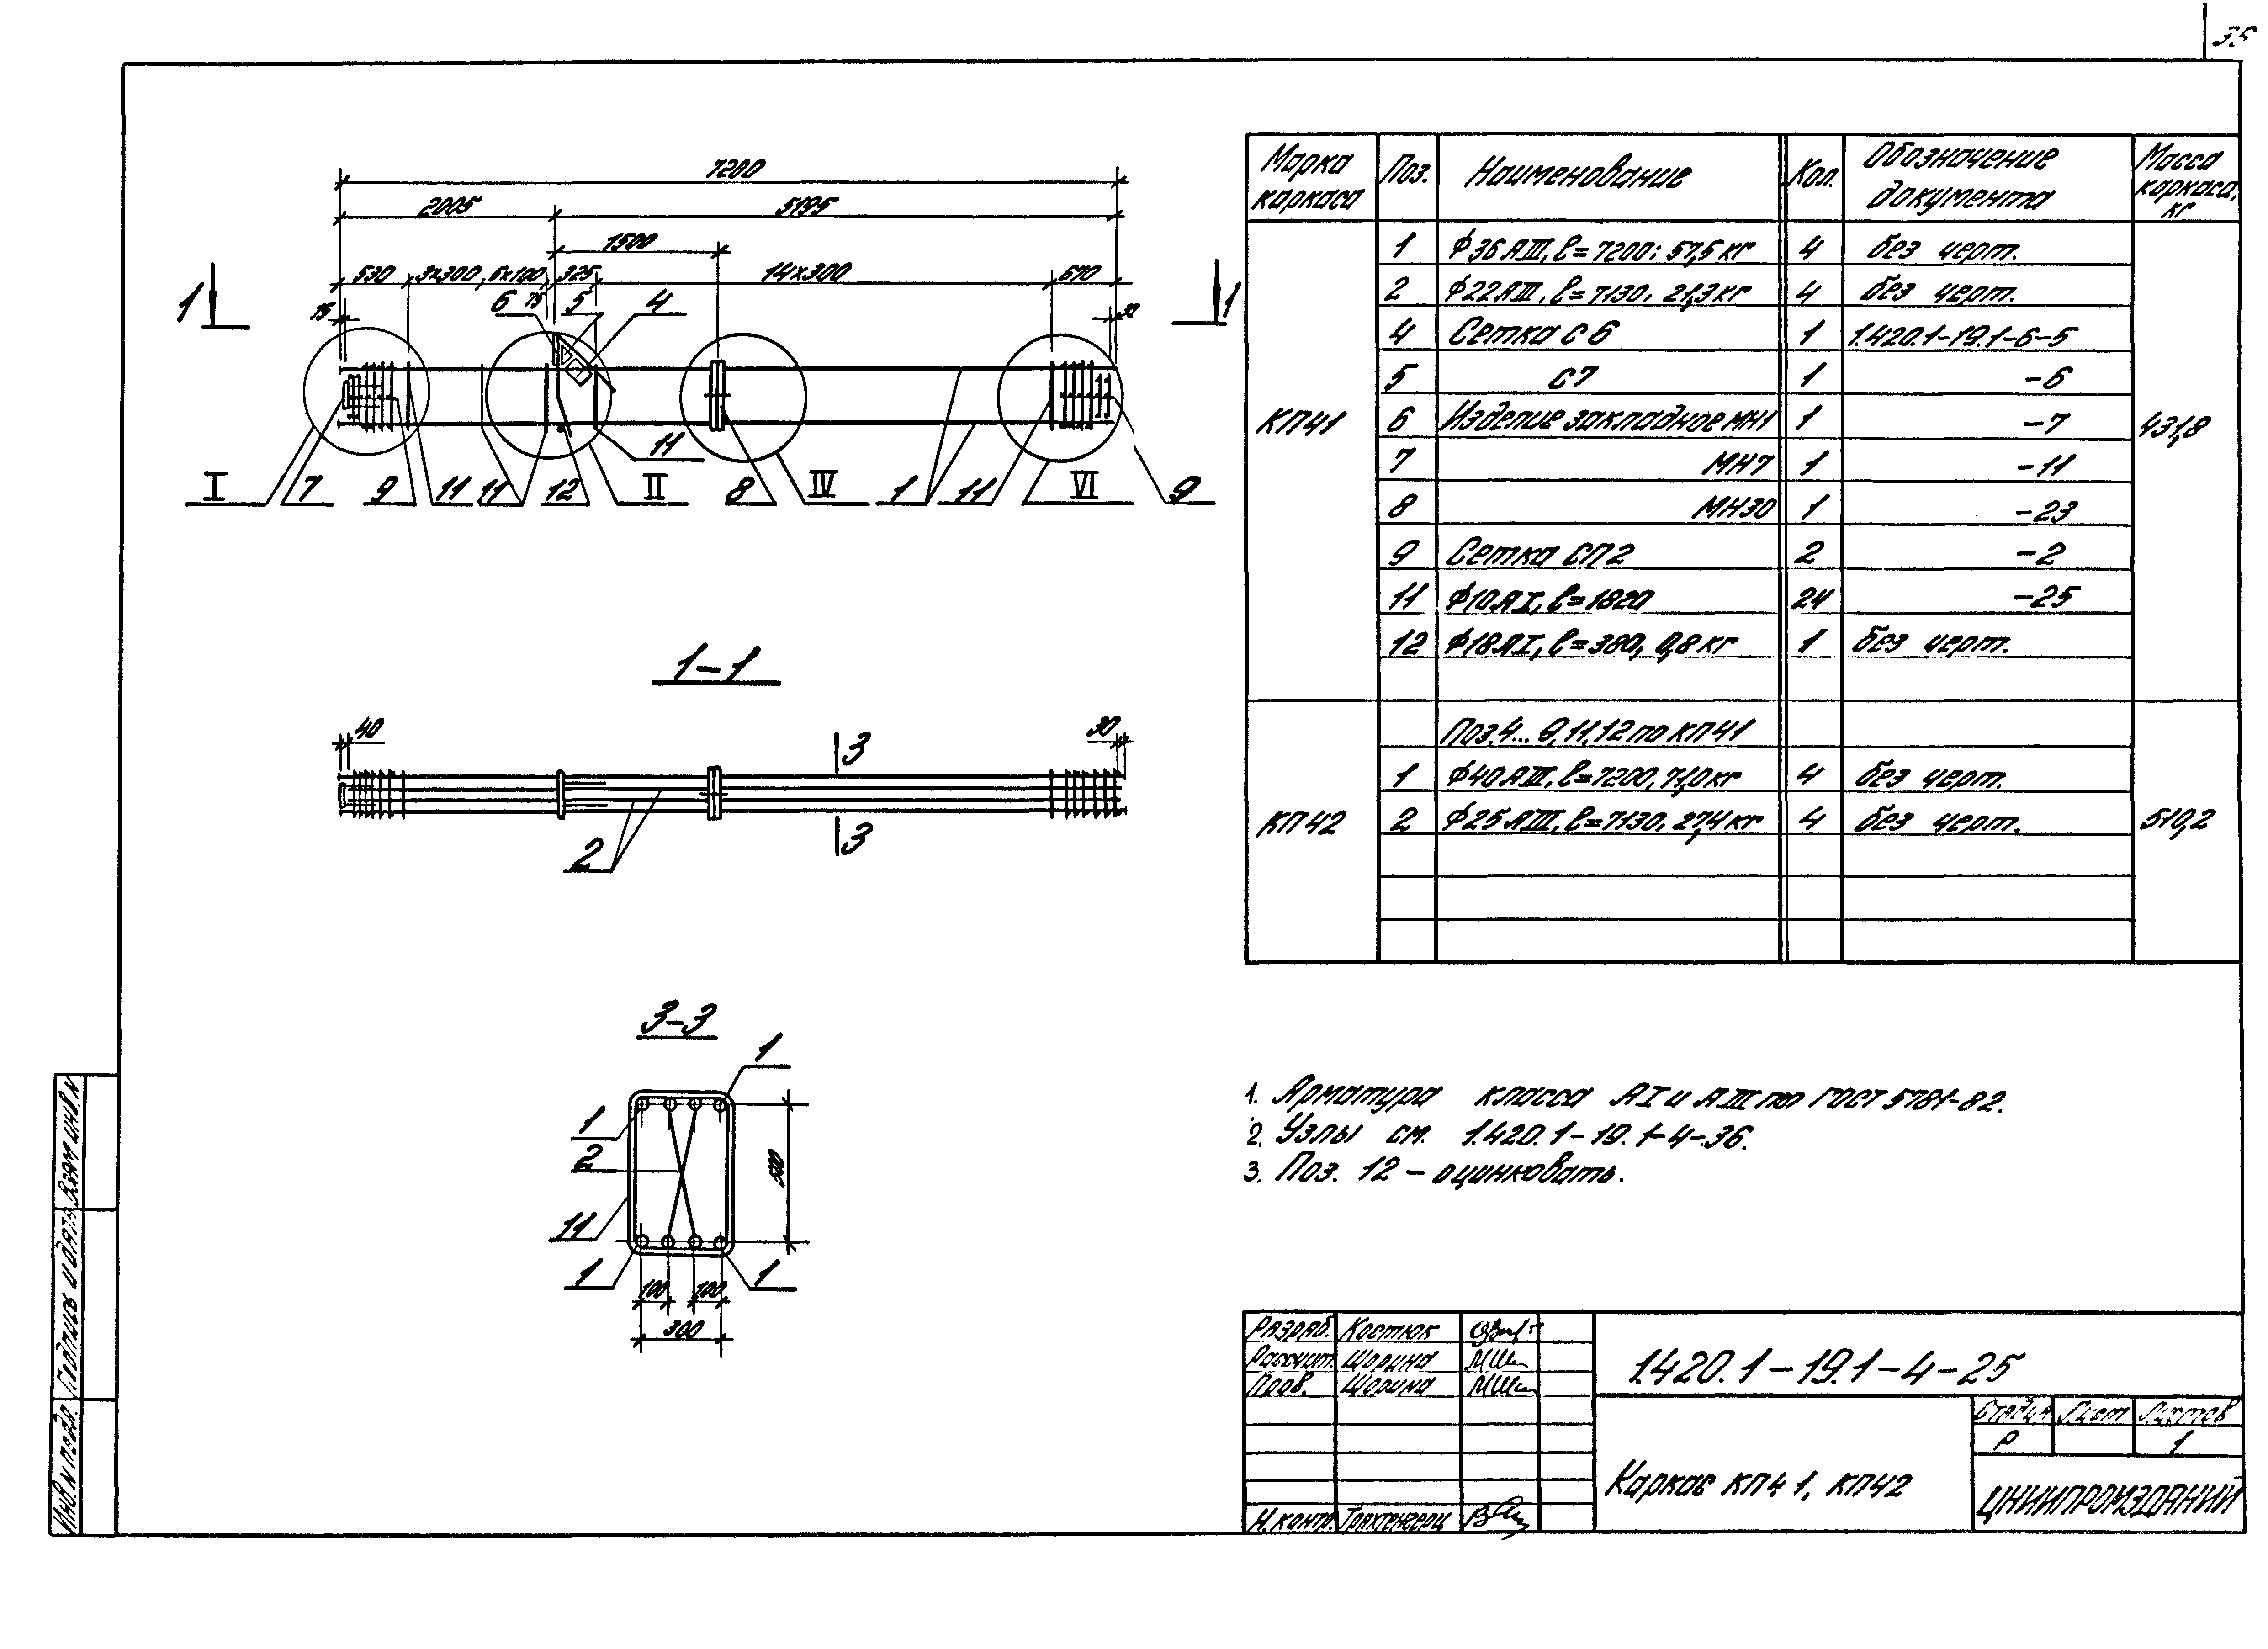 35
7200
2005 5195
1500
530 3х300 6х100 325 14х300 670
75
15
1 1
6 5 4
I 7 9 11 11 12 II 11 8 IV 1 11 VI 9
1-1
40 30
3
3
2
3-3
1
1
2
11
1 1
500
100 100
300
Марка каркаса Поз. Наименование Кол. Обозначение документа Масса каркаса, кг
КП41 431,8
1 ф36АIII, ℓ=7200; 57,5кг 4 без черт.
2 ф22АIII, ℓ=7130, 21,3кг 4 без черт.
4 Сетка С6 1 1.420.1-19.1-6-5
5 С7 1 -6
6 Изделие закладное МН1 1 -7
7 МН7 1 -11
8 МН30 1 -23
9 Сетка СП2 2 -2
11 ф10АI, ℓ=1820 24 -25
12 ф18АI, ℓ=380, 0,8кг 1 без черт.
Поз.4... 9,11,12 по КП41
КП42 510,2
1 ф40АIII, ℓ=7200, 71,0кг 4 без черт.
2 ф25АIII, ℓ=7130, 27,4кг 4 без черт.
1. Арматура класса АI и АIII по ГОСТ 5781-82.
2. Узлы см. 1.420.1-19.1-4-36.
3. Поз. 12 - оцинковать.
Разраб. Костюк
Рассчит. Шорина
Пров. Шорина
Н. контр. Трахтенгерц
1.420.1-19.1-4-25
Каркас КП41, КП42
Стадия Лист Листов
Р 1
ЦНИИПРОМЗДАНИЙ
Инв. N подл. Подпись и дата Взам инв. N